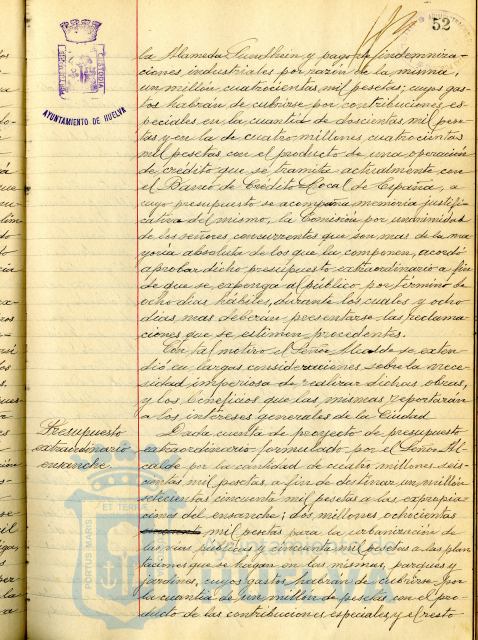 52
AYUNTAMIENTO DE HUELVA
la Alameda Sundheim y pago de indemniza-
ciones industriales por razón de la misma,
un millón cuatrocientas mil pesetas; cuyos gas-
tos habrán de cubrirse por contribuciones es-
peciales en la cuantía de doscientas mil pese-
tas y en la de cuatro millones cuatrocientas
mil pesetas con el producto de una operación
de crédito que se tramita actualmente con
el Banco de Crédito Local de España, a
cuyo presupuesto se acompaña memoria justifi-
cativa del mismo, la Comisión por unanimidad
de los señores concurrentes que son mas de la ma-
yoría absoluta de los que la componen, acordó
aprobar dicho presupuesto extraordinario a fin
de que se exponga al público por término de
ocho dias hábiles, durante los cuales y ocho
dias mas deberán presentarse las reclama-
ciones que se estimen procedentes.
Con tal motivo el Señor Alcalde se exten-
dió en largas consideraciones sobre la nece-
sidad imperiosa de realizar dichas obras,
y los beneficios que las mismas reportarán
a los intereses generales de la Ciudad.
Presupuesto
extraordinario
ensanche
Dada cuenta de proyecto de presupuesto
extraordinario formulado por el Señor Al-
calde por la cantidad de cuatro millones seis-
cientas mil pesetas, a fin de destinar un millón
setecientas cincuenta mil pesetas a las expropia-
ciones del ensanche; dos millones ochocientas
mil pesetas para la urbanización de
las vías públicas y cincuenta mil pesetas a las plan-
taciones que se hagan en las mismas, parques y
jardines, cuyos gastos habrán de cubrirse por
la cuantía de un millón de pesetas con el pro-
ducto de las contribuciones especiales, y el resto
PORTUS MARIS
ET TERRAE